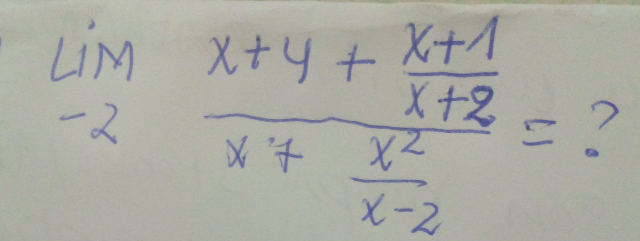 LIM x+4 + x+1
x+2
-2 = ?
x 7 x²
x-2